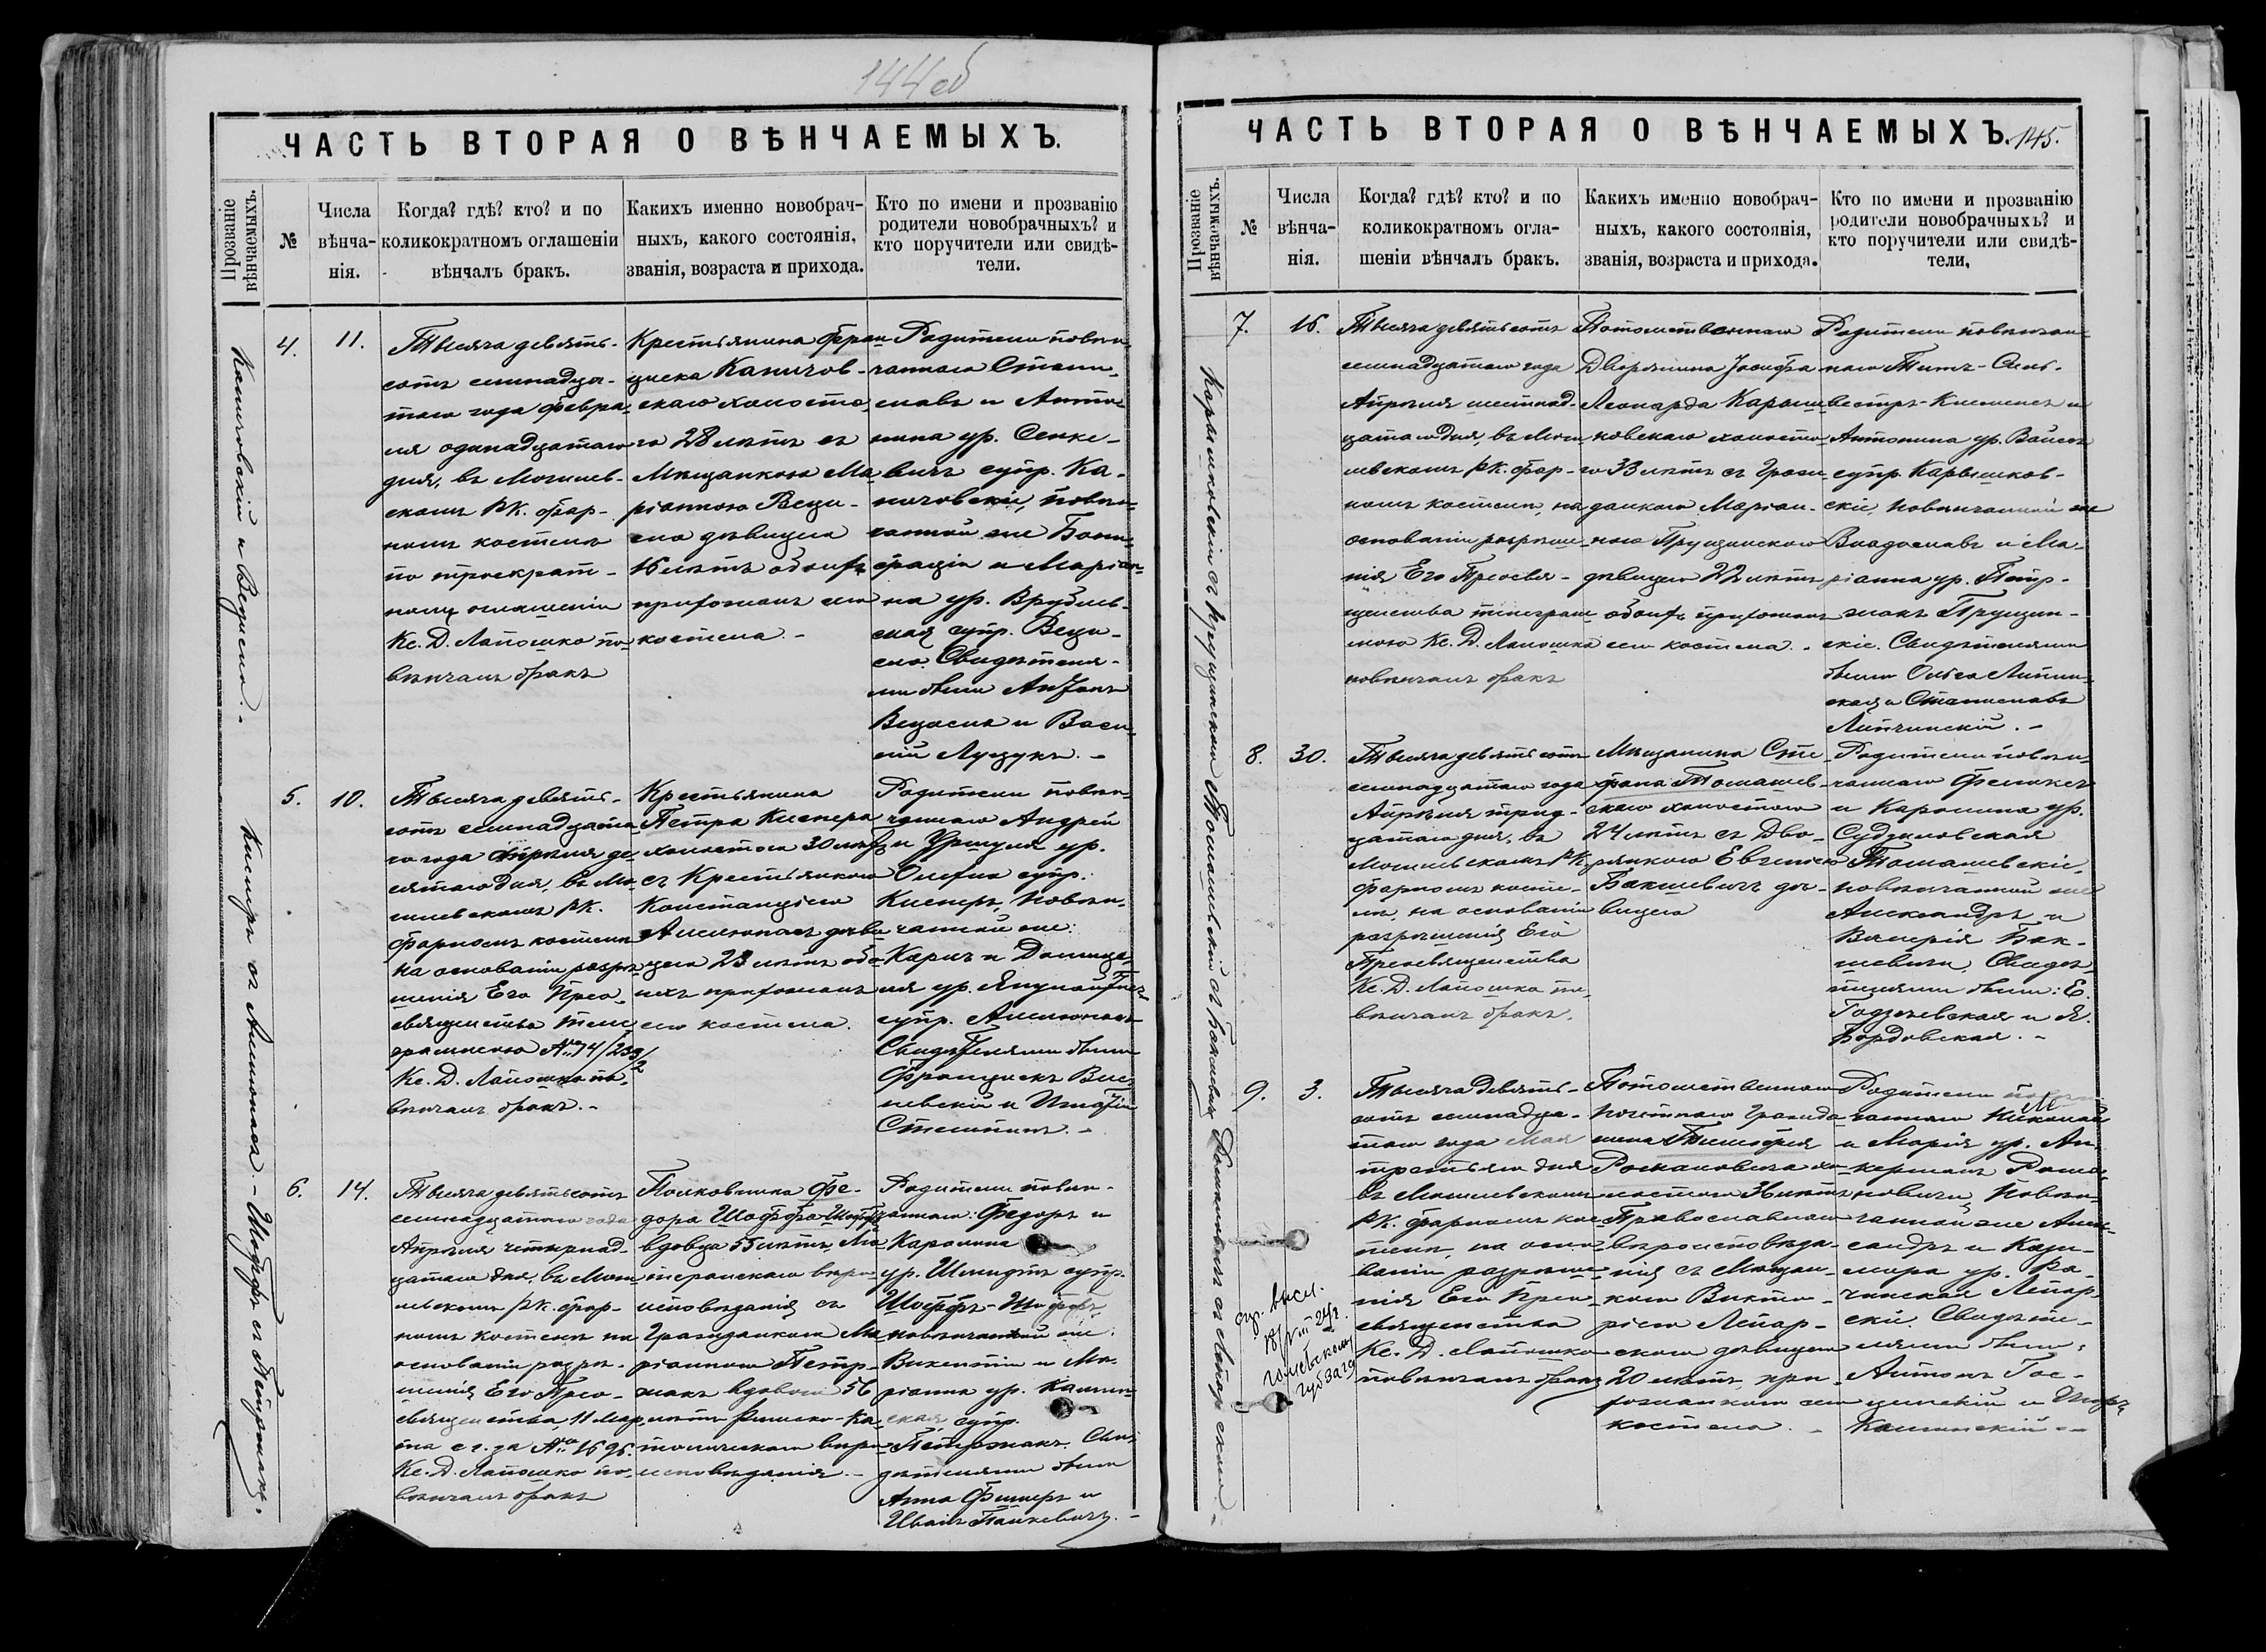 144 об
ЧАСТЬ ВТОРАЯ О ВѢНЧАЕМЫХЪ.
Прозваніе вѣнчаемыхъ.
№
Числа вѣнча-нія.
Когда? гдѣ? кто? и по коликократномъ оглашеніи вѣнчалъ бракъ.
Какихъ именно новобрач-ныхъ, какого состоянія, званія, возраста и прихода.
Кто по имени и прозванію родители новобрачныхъ? и кто поручители или свидѣ-тели.
4.
11.
Тысяча девять-
сотъ семнадца-
таго года февра-
ля одинадцатаго
дня, въ Могилев-
скомъ РК. фар-
номъ костелѣ
по троекрат-
ному оглашеніи
Кс. Д. Лапошко по-
вѣнчалъ бракъ
Крестьянина Фран
циска Каничов-
скаго холоста-
го 28 лѣтъ съ
Мѣщанкою Ма-
ріанною Веци-
ело дѣвицею
16 лѣтъ обоихъ
прихожанъ сего
костела. -
Родители повѣн-
чаннаго Стани-
славъ и Анто-
нина ур. Сенке-
вичъ супр. Ка-
ничовскіе, повѣн-
чанной же Бони-
фацій и Маріан-
на ур. Врублев-
ская супр. Веци-
ело. Свидѣтеля-
ми были Антонъ
и Васи-
лій Луцукъ. -
Каничовскій и Вецело. -
5.
10.
Тысяча девять-
сотъ семнадцата-
го года Апрѣля де-
сятаго дня, въ Мо-
гилевскомъ РК.
фарномъ костелѣ
на основаніи разрѣ-
шенія Его Прео-
священства теле-
граммою № 74/233/2
Кс. Д. Лапошко по-
вѣнчалъ бракъ. -
Крестьянина
Петра Киспера
холостого 30 лѣтъ
съ Крестьянкою
Констанціею
дѣви-
цею 23 лѣтъ обо-
ихъ прихожанъ
сего костела.
Родители повѣн-
чаннаго Андрей
и Уршуля ур.
супр.
Кисперъ, повѣн-
чанной же:
Карлъ и Домице-
ля ур.
супр.
Свидѣтелями были
Францискъ Вис-
невскій и Игнатій
6.
14.
Тысяча девятьсотъ
семнадцатаго года
Апрѣля четырнад-
цатаго дня, въ Моги-
левскомъ РК. фар-
номъ костелѣ на
основаніи разрѣ-
шенія Его Прео-
священства, 11 Мар-
та с.г. за № 1696.
Кс. Д. Лапошко по-
вѣнчалъ бракъ
Полковника Фе-
дора Шоффа-Шоффъ
вдовца 55 лѣтъ, Лю-
теранскаго вѣро-
исповѣданія съ
Гражданкою Ма-
ріанною Петр-
жакъ вдовою 56
лѣтъ Римско-Ка-
толическаго вѣро-
исповѣданія. -
Родители повѣн-
чаннаго: Федоръ и
Каролина
ур. Шмидтъ супр.
Шоффъ-Шоффъ,
повѣнчанной же:
Викентій и Ма-
ріанна ур. Камин-
ская супр.
Петржакъ. Сви-
дѣтелями были
Анна Фишеръ и
Иванъ Панкевичъ. -
Шоффъ съ Петржакъ.
145.
ЧАСТЬ ВТОРАЯ О ВѢНЧАЕМЫХЪ.
Прозваніе вѣнчаемыхъ.
№
Числа вѣнча-нія.
Когда? гдѣ? кто? и по коликократномъ огла-шеніи вѣнчалъ бракъ.
Какихъ именно новобрач-ныхъ, какого состоянія, званія, возраста и прихода.
Кто по имени и прозванію родители новобрачныхъ? и кто поручители или свидѣ-тели.
7.
16.
Тысяча девятьсотъ
семнадцатаго года
Апрѣля шестнад-
цатаго дня, въ Моги-
левскомъ РК. фар-
номъ костелѣ, на
основаніи разрѣше-
нія Его Преосвя-
щенства телеграм-
мою Кс. Д. Лапошко
повѣнчалъ бракъ
Потомственнаго
Дворянина Іосифа
Леонарда Карыш-
ковскаго холосто-
го 33 лѣтъ съ Граж-
данкою Маріан-
ною Прущинскою
дѣвицею 22 лѣтъ
обоихъ прихожанъ
сего костела. -
Родители повѣнчан-
наго Титъ-Силь-
вестръ-Клеменсъ и
Антонина ур. Войсятъ
супр. Карышков-
скіе, повѣнчанной же
Владиславъ и Ма-
ріанна ур. Петр-
жакъ Прущин-
скіе. Свидѣтелями
были Ольга Липин-
ская и Станиславъ
Липчинскій. -
Карышковскій съ Прущинскою
8.
30.
Тысяча девятьсотъ
семнадцатаго года
Апрѣля трид-
цатаго дня, въ
Могилевскомъ РК.
фарномъ косте-
лѣ, на основаніи
разрѣшенія Его
Преосвященства
Кс. Д. Лапошко по-
вѣнчалъ бракъ.
Мѣщанина Сте-
фана Томашев-
скаго холостого
24 лѣтъ съ Дво-
рянкою Евгеніею
Бакшевичъ дѣ-
вицею
Родители повѣн-
чаннаго Феликсъ
и Каролина ур.
Судзиловская
Томашевскіе,
повѣнчанной же
Александръ и
Валерія Бак-
шевичи. Свидѣ-
телями были: Е.
Годзевская и Я.
Бордовская. -
Томашевскій съ Бакшевичъ
9.
3.
Тысяча девять-
сотъ семнадца-
таго года Мая
третьяго дня
въ Могилевскомъ
РК. фарномъ кос-
телѣ, на осно-
ваніи разрѣше-
нія Его Прео-
священства
Кс. Д. Лапошко
повѣнчалъ бракъ
Потомственнаго
Почетнаго Гражда-
нина Тимофея
Романовича хо-
лостого 36 лѣтъ
Православнаго
вѣроисповѣда-
нія съ Мѣщан-
кою Викто-
ріею Лепар-
скою дѣвицею
20 лѣтъ, при-
хожанкою сего
костела. -
Родители повѣн-
чаннаго Николай
и Марія ур. Ан-
керманъ Рома-
новичи, повѣн-
чанной же Алек-
сандръ и Кази-
мира ур. Ра-
чинская Лепар-
скіе. Свидѣте-
лями были:
Антонъ Гос-
цинскій и Игорь
Калининскій -
Романовичъ съ Лепарскою. -